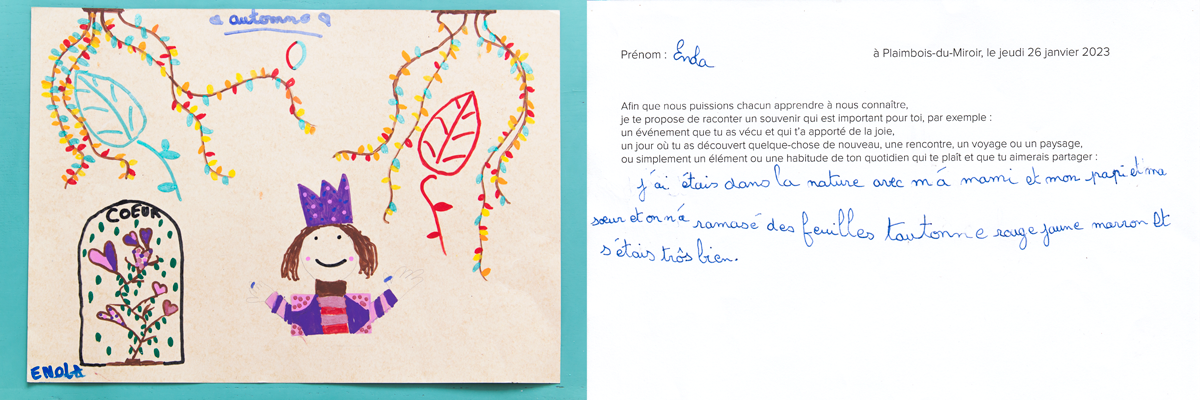 automne
COEUR
ENOLA
Prénom : Enola
à Plaimbois-du-Miroir, le jeudi 26 janvier 2023
Afin que nous puissions chacun apprendre à nous connaître,
je te propose de raconter un souvenir qui est important pour toi, par exemple :
un événement que tu as vécu et qui t'a apporté de la joie,
un jour où tu as découvert quelque-chose de nouveau, une rencontre, un voyage ou un paysage,
ou simplement un élément ou une habitude de ton quotidien qui te plaît et que tu aimerais partager :
j'ai étais dans la nature avec m'a mami et mon papi et ma
sœur et on n'a ramasé des feuilles tautonne rouge jaune marron Et
s'étais très bien.